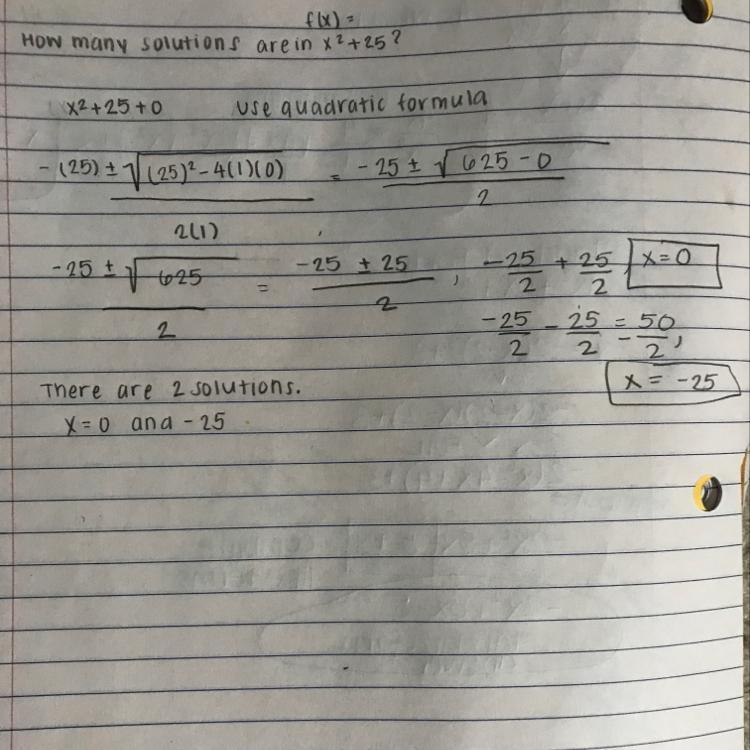 f(x) =
How many solutions are in x²+25?
x²+25+0 use quadratic formula
-(25) ± √(25)²-4(1)(0) / 2(1) = -25 ± √625-0 / 2
-25 ± √625 / 2 = -25 ± 25 / 2 , -25/2 + 25/2 x=0
-25/2 - 25/2 = -50/2,
There are 2 solutions. x = -25
x=0 and -25